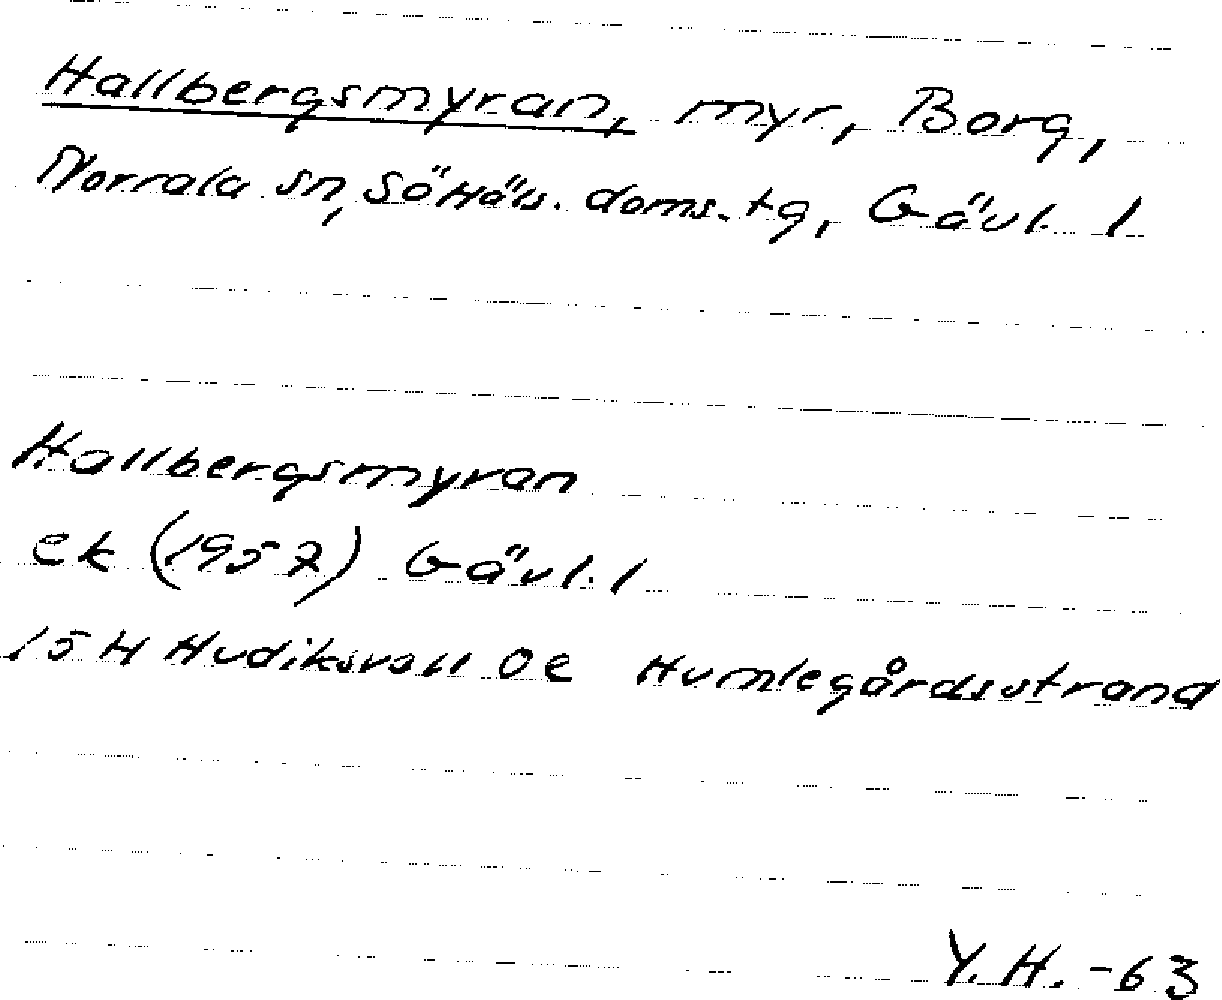 Hallbergsmyran, myr, Borg,
Norrala sn, SöHäls. doms.tg, Gävl. l
Hallbergsmyran
ek (1957) Gävl. l
15 H Hudiksvall 0e Humlegårdsstrand
Y.H. -63